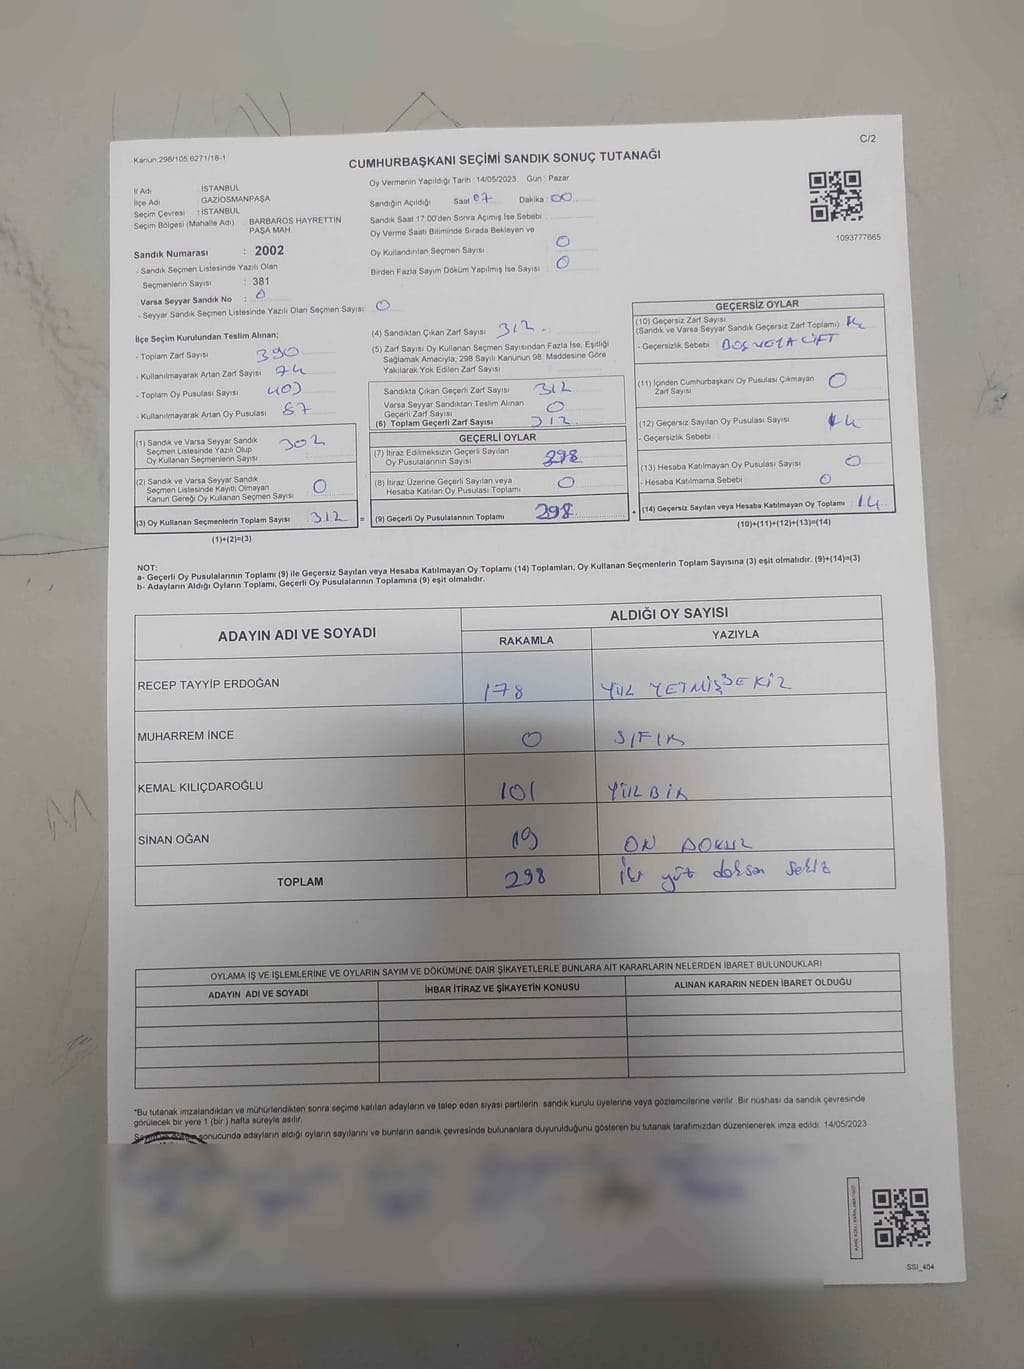 C/2
Kanun:298/105,6271/18-1
CUMHURBAŞKANI SEÇİMİ SANDIK SONUÇ TUTANAĞI
İl Adı : İSTANBUL
İlçe Adı : GAZİOSMANPAŞA
Seçim Çevresi : İSTANBUL
Seçim Bölgesi (Mahalle Adı) : BARBAROS HAYRETTİN PAŞA MAH.
Sandık Numarası : 2002
- Sandık Seçmen Listesinde Yazılı Olan
Seçmenlerin Sayısı : 381
Varsa Seyyar Sandık No : 0
- Seyyar Sandık Seçmen Listesinde Yazılı Olan Seçmen Sayısı: 0
Oy Vermenin Yapıldığı Tarih : 14/05/2023 Gün : Pazar
Sandığın Açıldığı Saat 07 Dakika 00
Sandık Saat 17.00'den Sonra Açımış İse Sebebi
Oy Verme Saati Bitiminde Sırada Bekleyen ve
Oy Kullandırılan Seçmen Sayısı 0
Birden Fazla Sayım Döküm Yapılmış İse Sayısı 0
1093777665
İlçe Seçim Kurulundan Teslim Alınan;
- Toplam Zarf Sayısı 390
- Kullanılmayarak Artan Zarf Sayısı 74
- Toplam Oy Pusulası Sayısı 403
- Kullanılmayarak Artan Oy Pusulası 87
(1) Sandık ve Varsa Seyyar Sandık
Seçmen Listesinde Yazılı Olup
Oy Kullanan Seçmenlerin Sayısı 302
(2) Sandık ve Varsa Seyyar Sandık
Seçmen Listesinde Kayıtlı Olmayan
Kanun Gereği Oy Kullanan Seçmen Sayısı 0
(3) Oy Kullanan Seçmenlerin Toplam Sayısı : 312 =
(1)+(2)=(3)
(4) Sandıktan Çıkan Zarf Sayısı 312
(5) Zarf Sayısı Oy Kullanan Seçmen Sayısından Fazla İse, Eşitliği
Sağlamak Amacıyla; 298 Sayılı Kanunun 98. Maddesine Göre
Yakılarak Yok Edilen Zarf Sayısı
Sandıkta Çıkan Geçerli Zarf Sayısı 312
Varsa Seyyar Sandıktan Teslim Alınan
Geçerli Zarf Sayısı 0
(6) Toplam Geçerli Zarf Sayısı 312
GEÇERLİ OYLAR
(7) İtiraz Edilmeksizin Geçerli Sayılan
Oy Pusulalarının Sayısı 298
(8) İtiraz Üzerine Geçerli Sayılan veya
Hesaba Katılan Oy Pusulası Toplamı 0
(9) Geçerli Oy Pusulalarının Toplamı 298 +
GEÇERSİZ OYLAR
(10) Geçersiz Zarf Sayısı
(Sandık ve Varsa Seyyar Sandık Geçersiz Zarf Toplamı)
- Geçersizlik Sebebi BOŞ VEYA ÇİFT
(11) İçinden Cumhurbaşkanı Oy Pusulası Çıkmayan
Zarf Sayısı 0
(12) Geçersiz Sayılan Oy Pusulası Sayısı
- Geçersizlik Sebebi
(13) Hesaba Katılmayan Oy Pusulası Sayısı 0
- Hesaba Katılmama Sebebi 0
(14) Geçersiz Sayılan veya Hesaba Katılmayan Oy Toplamı 14
(10)+(11)+(12)+(13)=(14)
NOT:
a- Geçerli Oy Pusulalarının Toplamı (9) ile Geçersiz Sayılan veya Hesaba Katılmayan Oy Toplamı (14) Toplamları, Oy Kullanan Seçmenlerin Toplam Sayısına (3) eşit olmalıdır. (9)+(14)=(3)
b- Adayların Aldığı Oyların Toplamı, Geçerli Oy Pusulalarının Toplamına (9) eşit olmalıdır.
ADAYIN ADI VE SOYADI
ALDIĞI OY SAYISI
RAKAMLA
YAZIYLA
RECEP TAYYİP ERDOĞAN 178 YÜZ YETMİŞSEKİZ
MUHARREM İNCE 0 SIFIR
KEMAL KILIÇDAROĞLU 101 YÜZ BİR
SİNAN OĞAN 19 ON DOKUZ
TOPLAM 298 iki yüz doksan sekiz
OYLAMA İŞ VE İŞLEMLERİNE VE OYLARIN SAYIM VE DÖKÜMÜNE DAİR ŞİKAYETLERLE BUNLARA AİT KARARLARIN NELERDEN İBARET BULUNDUKLARI
ADAYIN ADI VE SOYADI
İHBAR İTİRAZ VE ŞİKAYETİN KONUSU
ALINAN KARARIN NEDEN İBARET OLDUĞU
*Bu tutanak imzalandıktan ve mühürlendikten sonra seçime katılan adayların ve talep eden siyasi partilerin sandık kurulu üyelerine veya gözlemcilerine verilir. Bir nüshası da sandık çevresinde
görülecek bir yere 1 (bir) hafta süreyle asılır.
sonucunda adayların aldığı oyların sayılarını ve bunların sandık çevresinde bulunanlara duyurulduğunu gösteren bu tutanak tarafımızdan düzenlenerek imza edildi. 14/05/2023
SSİ_404